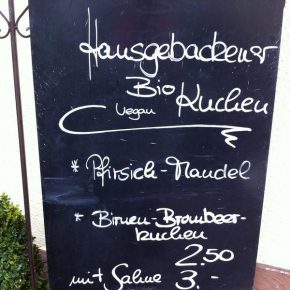 Hausgebackener
Bio
Vegan Kuchen
* Pfirsich-Mandel
* Birnen-Brombeer-
kuchen
2.50
mit Sahne 3.-